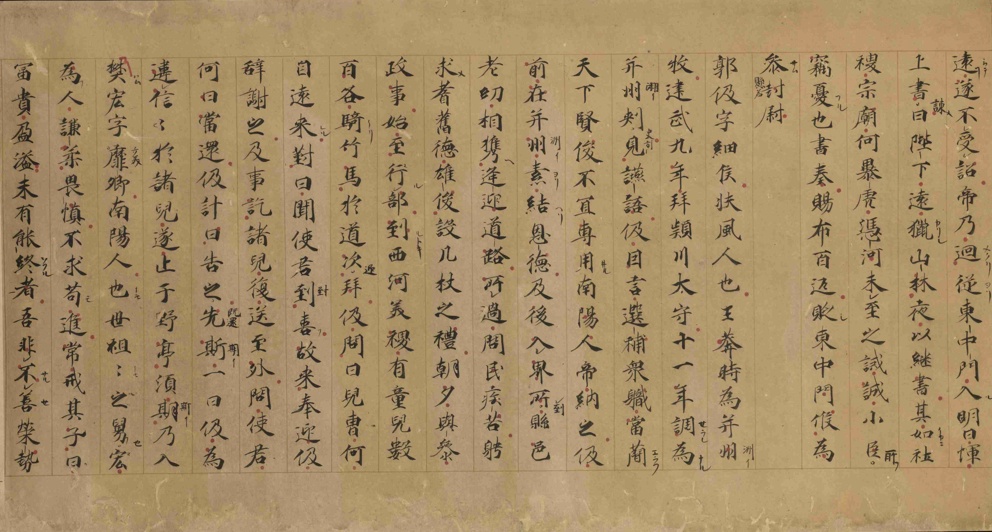 遠遂不受詔帝乃迴従東中門入明日惲
上書曰陛下遠獵山林夜以継晝其如社
稷宗廟何暴虎憑河未至之誡誠小臣所
竊憂也書奏賜布百疋貶東中門候為
叅封尉
郭伋字細侯扶風人也王莽時為并州
牧建武九年拜潁川大守十一年調為
并州刺史引見讌語伋因言選補衆職當簡
天下賢俊不宜専用南陽人帝納之伋
前在并州素結恩徳及後入界所到縣邑
老幼相携逢迎道路所過問民疾苦聘
求耆舊徳雄俊設几杖之禮朝夕與叅
政事始至行部到西河美稷有童兒數
百各騎竹馬於道次迎拜伋問曰兒曹何
自遠来對曰聞使君到喜故来奉迎伋
辭謝之及事訖諸兒復送至郭外問使君
何日當還伋計日告之先期一日伋為
違信々於諸兒遂止于野亭須期乃入
樊宏字靡卿南陽人也世祖々之舅宏
為人謙柔畏慎不求苟進常戒其子曰
冨貴盈溢未有能終者吾非不善榮勢